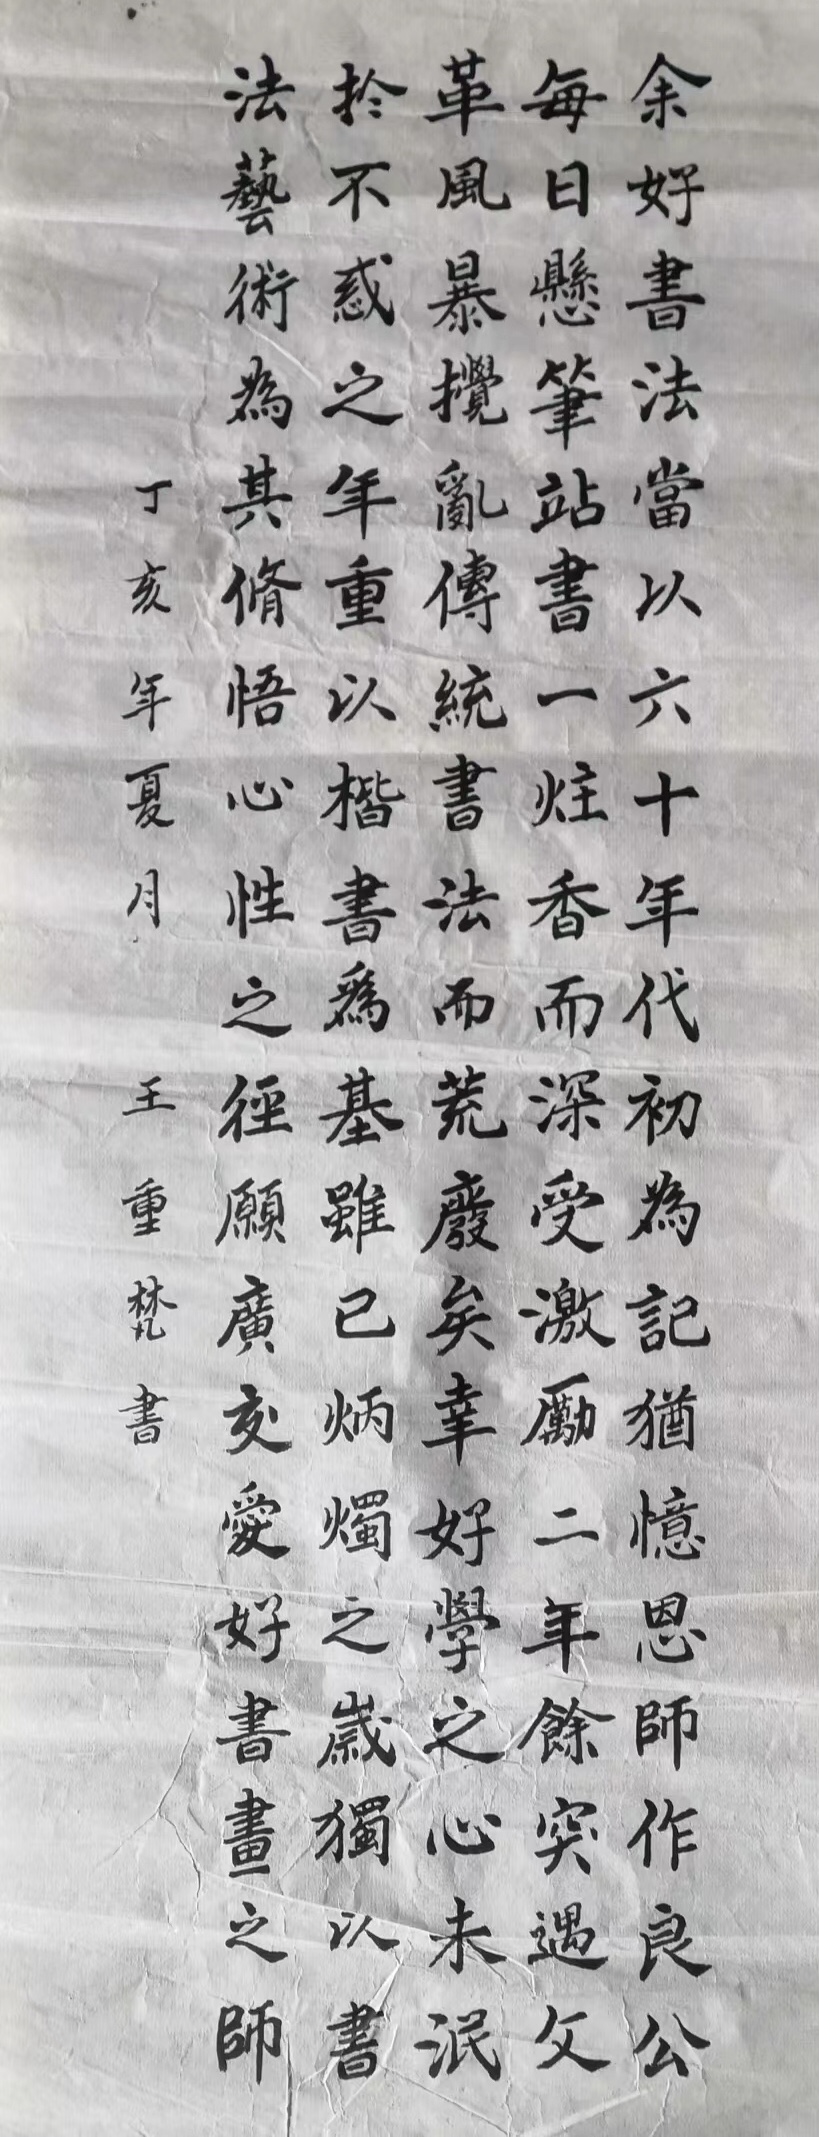 余好書法當以六十年代初為記猶憶恩師作良公
每日懸筆站書一炷香而深受激勵二年餘突遇文
革風暴攪亂傳統書法而荒廢矣幸好學之心未泯
於不惑之年重以楷書爲基雖已炳燭之歲獨以書
法藝術為其脩悟心性之徑願廣交愛好書畫之師
丁亥年夏月 王重梵書